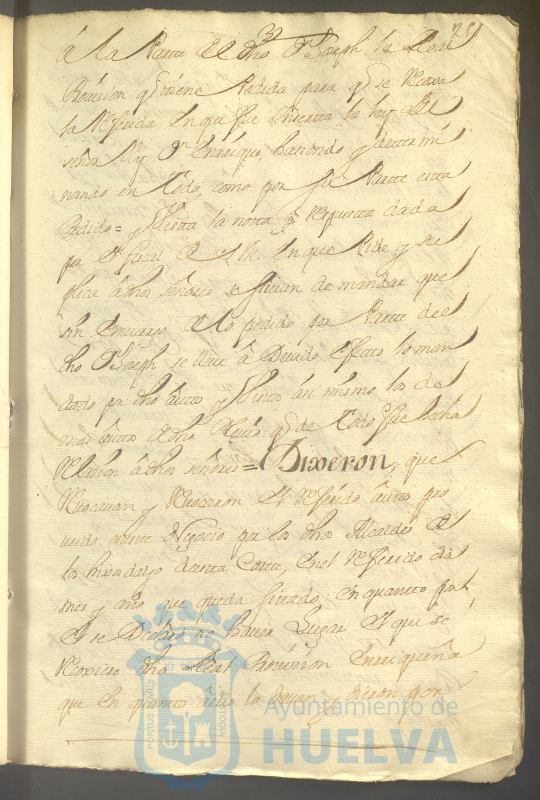 â la Parte del dho D.n Joseph la Real
Provision q.e tiene Pedida para q.e se
la Referida en que fue inserta la ley del
señor Rey D.n Enrrique, haciendo y determi
nando en todo, como por su Parte esta
Pedido = y Vista la notta y Repuesta dada
por el fiscal de S. M. en que Pide y su
plica â dhos señores se sirvan de mandar que
sin embargo de lo pedido por Parte del
dho D.n Joseph se lleve â Devido efecto lo man
dado por dho âutto y Visto âsi mismo los de
mas âuttos de dho Pleito q.e de todo fue hecha
Relacion â dhos señores = Dixeron, que
Revocavan y Revocaron el Referido âutto pro
veido en este Negocio por los dhos Alcaldes de
los hijosdalgo de esta Corte, en el Referido dia
mes y año que queda sittado en quantto por
el se Declaró no haver lugar el que se
dha Real Provision Enrriqueña
que en quantto â esto lo davan y dieron por
Ayuntamiento de
HUELVA